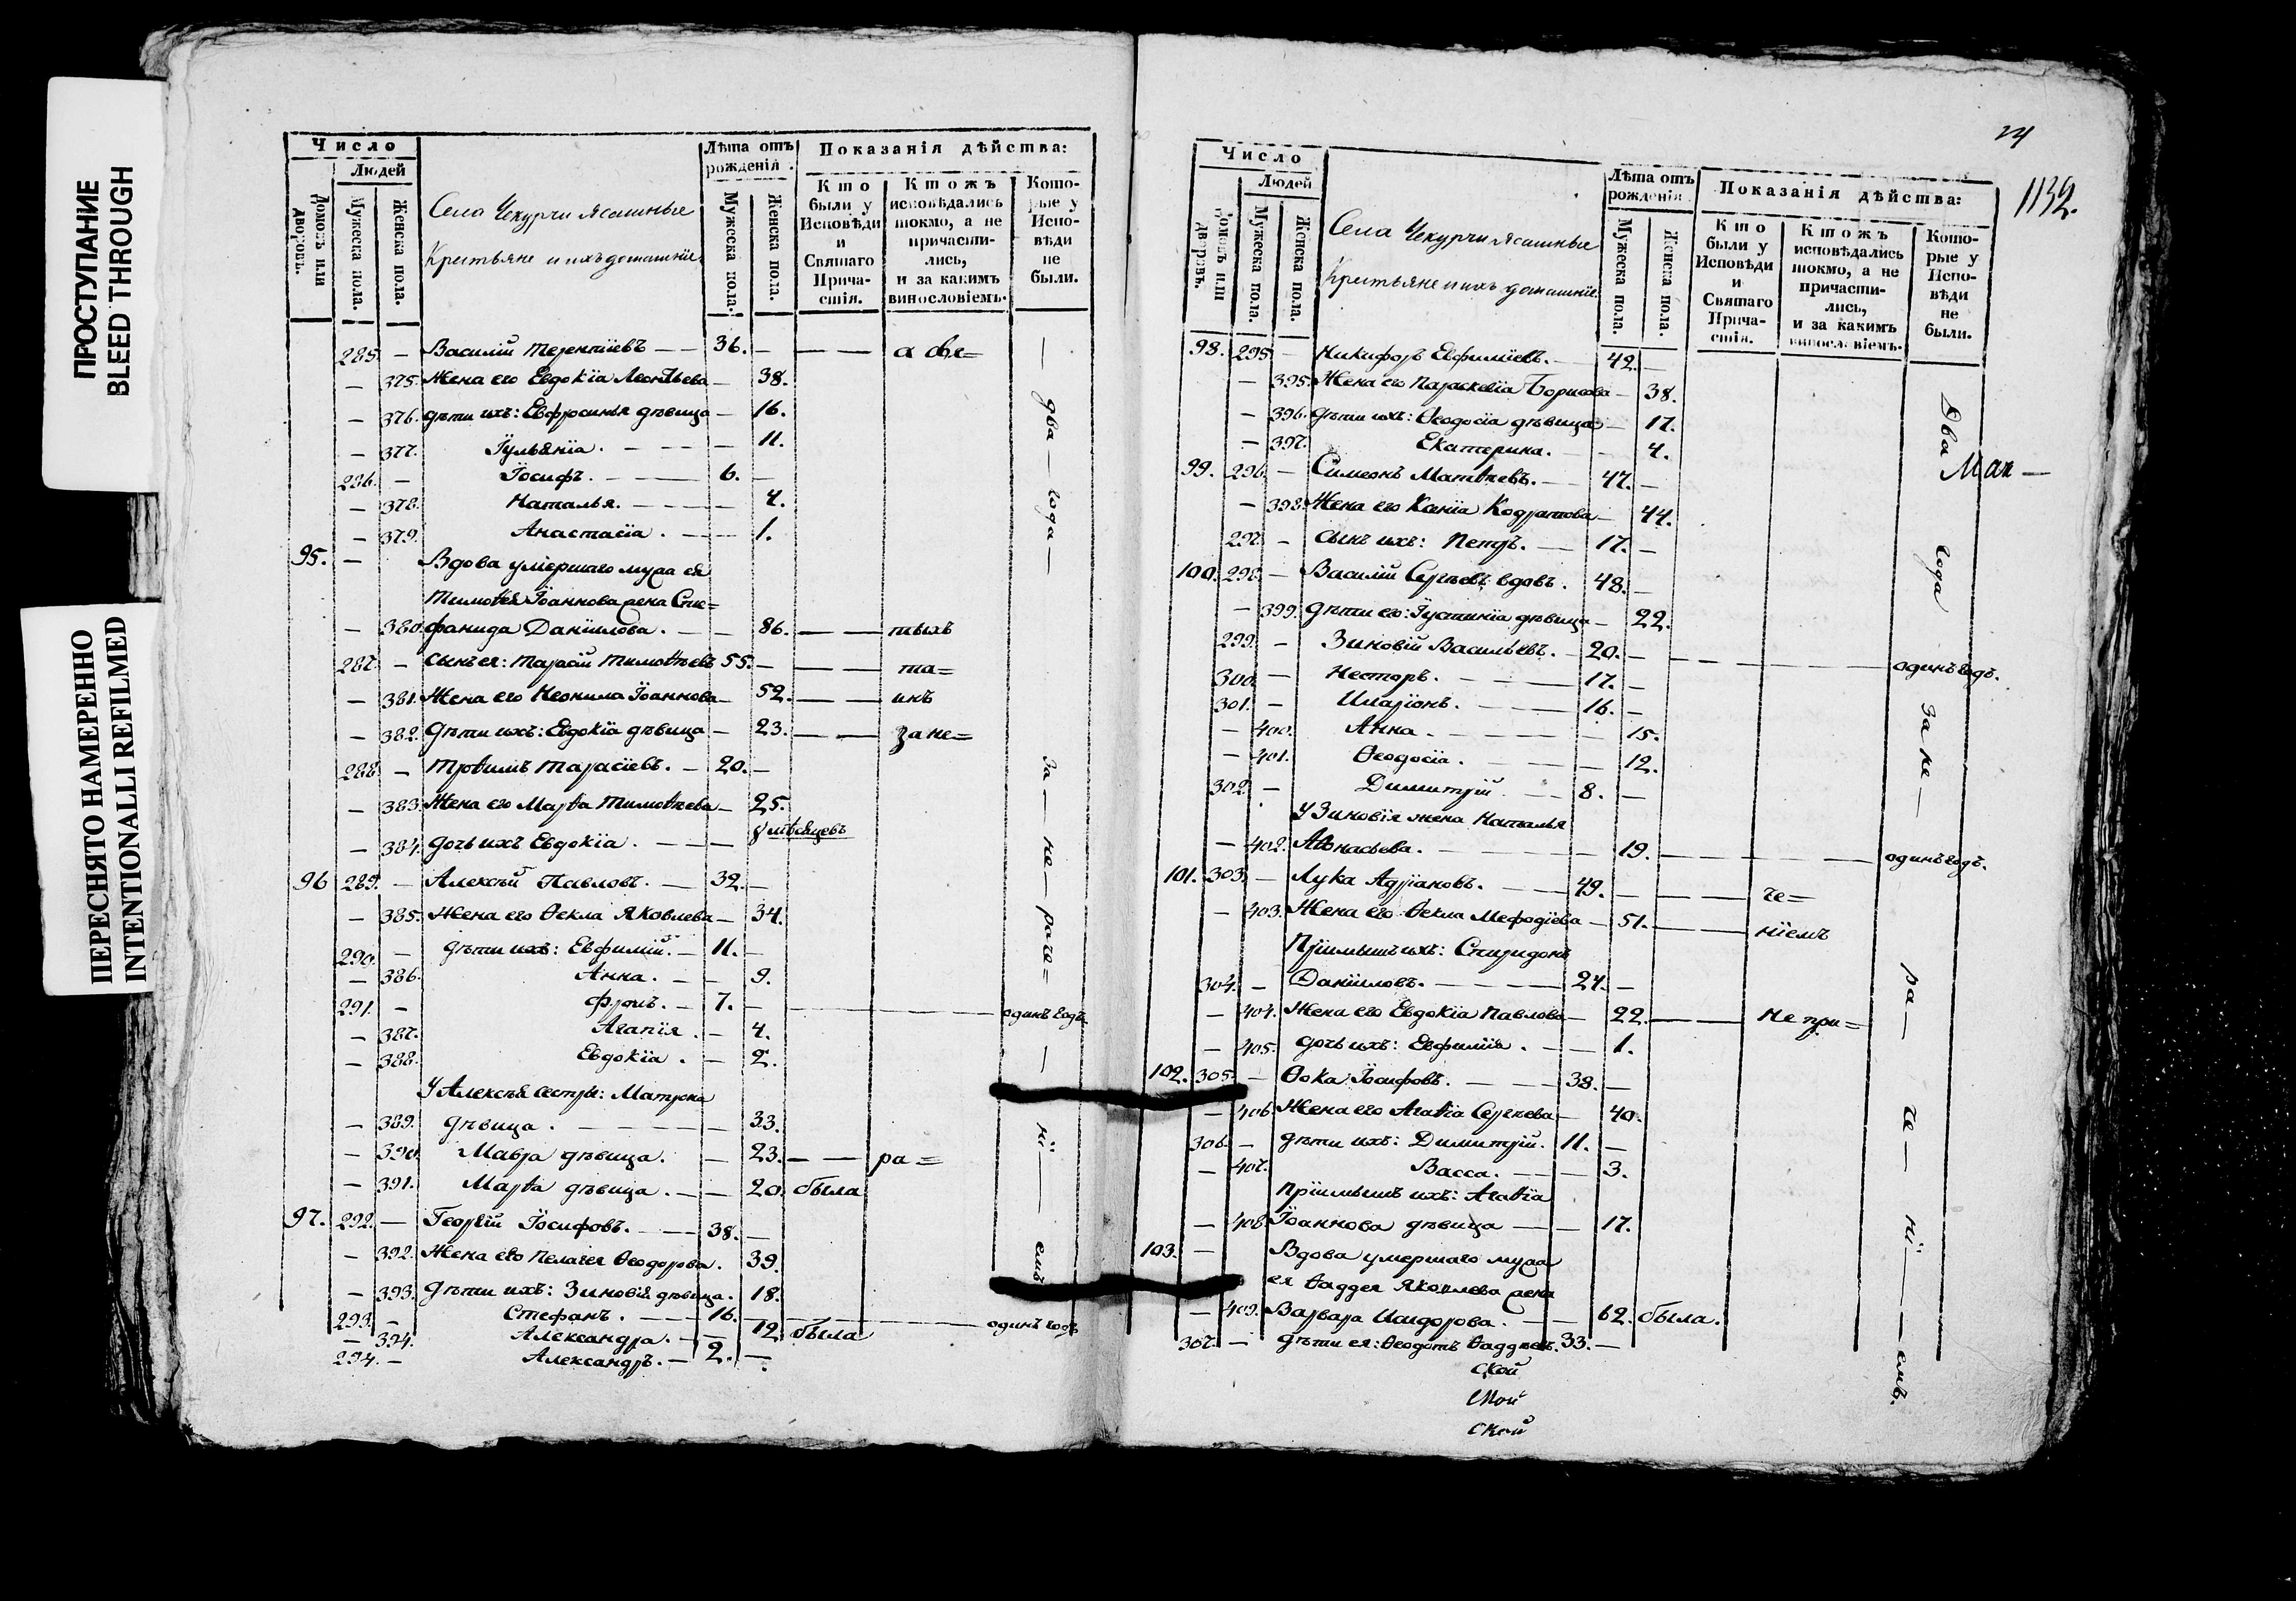 ПРОСТУПАНИЕ
BLEED THROUGH
ПЕРЕСНЯТО НАМЕРЕННО
INTENTIONALLI REFILMED
Число
Людей
Домовъ или дворовъ.
Мужеска пола.
Женска пола.
Села Чекурчи Ясашные
Крестьяне и ихъ домашніе
Лѣта отъ рожденія.
Мужеска пола.
Женска пола.
Показанія дѣйства:
Кто были у Исповѣди и Святаго Прича-стія.
Ктожъ исповѣдались токмо, а не причасти-лись, и за какимъ винословіемъ.
Кото-рые у Испо-вѣди не были.
285. — Василій Терентіевъ — — 36. — — — а свя=
— 375. Жена его Евдокіа Леонтьева — 38.
— 376. Дѣти ихъ: Евфросинья дѣвица — 16.
— 377. Іульянія. — — — 11.
286. — Іосифъ. — — 6. —
— 378. Наталья. — — — 4.
— 379. Анастасіа. — — 1.
95. — Вдова умершаго мужа ея
Тимоѳея Іоаннова жена Сте=
— 380. фанида Даніилова. — — 86. — — тыхъ
287. — Сынъ ея: Тарасій Тимоѳеевъ 55. — — — та=
— 381. Жена его Неонила Іоаннова — 52. — — инъ
— 382. Дѣти ихъ: Евдокіа дѣвица — 23. — — за не=
288. — Трофимъ Тарасіевъ. — 20. —
— 383. Жена его Марѳа Тимоѳеева — 25.
— 384. Дочь ихъ Евдокіа. — — — 8 мѣсяцевъ
96 289. — Алексѣй Павловъ. — 32. —
— 385. Жена его Ѳекла Яковлева — 34.
290. — Дѣти ихъ: Евфимій. — 11. —
— 386. Анна. — — 9.
291. — Фролъ. — 7. — — — — одинъ годъ.
— 387. Агапія. — 4.
— 388. Евдокіа. — 2.
У Алексѣя сестры: Матрона
— 389. дѣвица. — — — — 33.
— 390. Мавра дѣвица. — 23. — — ра=
— 391. Марѳа дѣвица. — — 20. была
97. 292. — Георгій Іосифовъ. — — 38. —
— 392. Жена его Пелагея Ѳеодорова. 39.
— 393. Дѣти ихъ: Зиновія дѣвица. 18.
293. — Стефанъ. — — 16. — — — одинъ годъ
— 394. Александра. — — 12. была
294. — Александръ. — 2. —
— два — года — за — не — раче= — ні — емъ
24
1132.
Число
Людей
Домовъ или дворовъ.
Мужеска пола.
Женска пола.
Села Чекурчи Ясашные
Крестьяне и ихъ домашніе
Лѣта отъ рожденія.
Мужеска пола.
Женска пола.
Показанія дѣйства:
Кто были у Исповѣди и Святаго Прича-стія.
Ктожъ исповѣдались токмо, а не причасти-лись, и за какимъ винословіемъ.
Кото-рые у Испо-вѣди не были.
98. 295. — Никифоръ Евфиміевъ. — 42. —
— 395. Жена его Параскевіа Борисова — 38.
— 396. Дѣти ихъ: Ѳеодосіа дѣвица — 17.
— 397. Екатерина. — — 4.
99. 296. — Симеонъ Матвѣевъ. — 47. —
— 398. Жена его Ксенія Кодратова — 44.
297. — Сынъ ихъ: Петръ. — 17. —
100. 298. — Василій Сергѣевъ вдовъ. 48. —
— 399. Дѣти его: Іустиніа дѣвица — 22.
299. — Зиновій Васильевъ. — 20. — — — — одинъ годъ.
300. — Несторъ. — — 17. —
301. — Иларіонъ. — — 16. —
— 400. Анна. — — — 15.
— 401. Ѳеодосіа. — — — 12.
302. — Димитрій. — 8. —
У Зиновія жена Наталья
— 402. Аѳонасьева. — — — 19. — — — одинъ годъ.
101. 303. — Лука Адріановъ. — — 49. — — — че=
— 403. Жена его Ѳекла Мефодіева — 51. — — ніемъ
Пріимышъ ихъ: Спиридонъ
304. — Даніиловъ. — — — 24. —
— 404. Жена его Евдокіа Павлова — 22. — — не при=
— 405. Дочь ихъ: Евфимія. — — 1.
102. 305. — Ѳока Іосифовъ. — — 38. —
— 406. Жена его Агаѳіа Сергѣева — 40.
306. — Дѣти ихъ: Димитрій. 11. —
— 407. Васса. — — 3.
Пріимышъ ихъ: Агаѳіа
— 408. Іоаннова дѣвица — — 17.
103. — Вдова умершаго мужа
ея Ѳаддея Яковлева жена
— 409. Варвара Исидорова. — — 62. была.
307. — Дѣти ея: Ѳеодотъ Ѳаддѣевъ. 33. —
ской
ской
Два года за не — ра — че — ні — емъ.